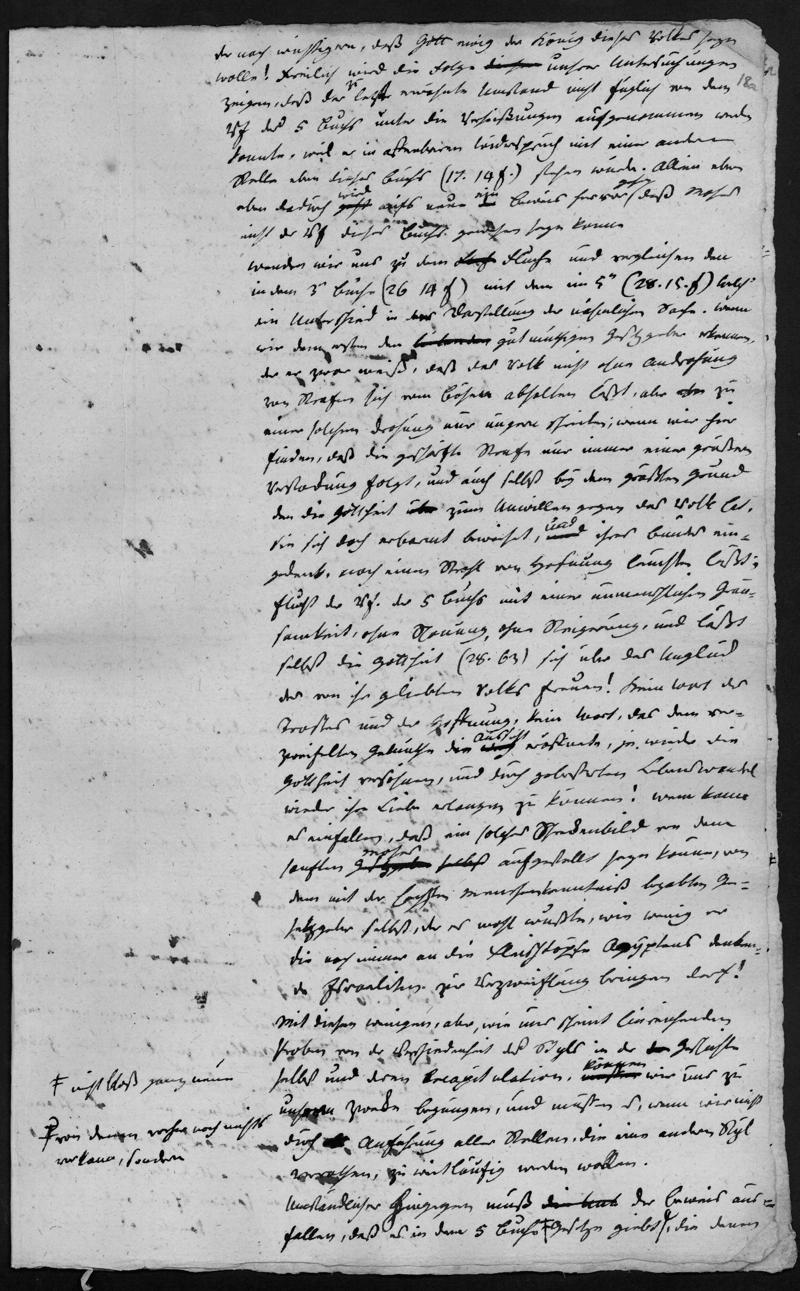 der noch wichtigern, daß Gott ewig der König dieses Volkes seyn
wolle! Freilich wird die Folge unsrer Untersuchungen
18a
zeigen, daß der letzt erwähnte Umstand nicht füglich von dem
Vf des 5 Buchs unter die Verheißungen aufgenommen werden
konnte, weil er in offenbarem Widerspruch mit einer andern
Stelle eben dieses Buchs (17. 14 f.) stehen würde. Allein eben
eben dadurch wird aufs neue ein Beweis hervor gehn, daß Moses
nicht der Vf dieses Buchs gewesen seyn könne
Wenden wir uns zu dem Fluche und vergleichen den
in dem 3 Buche (26 14 f) mit dem im 5n (28. 15. f) welch
ein Unterschied in der Vorstellung der nehmlichen Sache. Wenn
wir dem ersten den gutmüthigen Gesetzgeber erkennen,
der er zwar weiß, daß das Volk nicht ohne Androhung
von Strafen sich vom Bösen abhalten läßt, aber zu
einer solchen Drohung nur ungern schreitet; wenn wir hier
finden, daß die geschärfte Strafe nur immer einer größern
Verstockung folgt, und auch selbst bey dem größten Grund
den die Gottheit zum Unwillen gegen das Volk hat,
sie sich doch erbarmt beweiset, und ihres Bundes ein-
gedenk, noch einen Strahl von Hofnung leuchten läßt;
flucht der Vf. des 5 Buchs mit einer unmenschlichen Grau-
samkeit, ohne Schonung, ohne Steigerung, und läßt
selbst die Gottheit (28. 63) sich über das Unglück
des von ihr geliebten Volks freuen! Kein Wort des
Trostes und der Hoffnung, kein Wort, das dem ver-
zweifelten Gemüthe die Aussicht eröffnete, je wieder die
Gottheit versöhnen, und durch gebesserten Lebenswandel
wieder ihre Liebe erlangen zu können! Wem kann
es einfallen, daß ein solches Schreckenbild von dem
sanften Moses aufgestellt seyn könne, von
dem mit der höchsten Menschenkenntniß begabten Ge-
setzgeber selbst, der es wohl wußte, wie wenig er
die noch immer an die Fleischtöpfe Aegyptens denken-
de Israeliten zur Verzweiflung bringen darf!
Mit diesen wenigen, aber, wie uns scheint hinreichenden
Proben von der Verschiedenheit des Styls in der Geschichte
selbst und deren Recapitulation, können wir uns zu
unserm Zwecke begnügen, und müssen es, wenn wir nicht
durch Anführung aller Stellen, die einen andern Styl
verrathen, zu weitläufig werden wollen.
Umständlicher hingegen muß der Beweis aus-
fallen, daß es in dem 5 Buche Gesetze giebt, die denen
nicht bloß ganz neue
von denen vorher noch nichts
vorkam, sondern